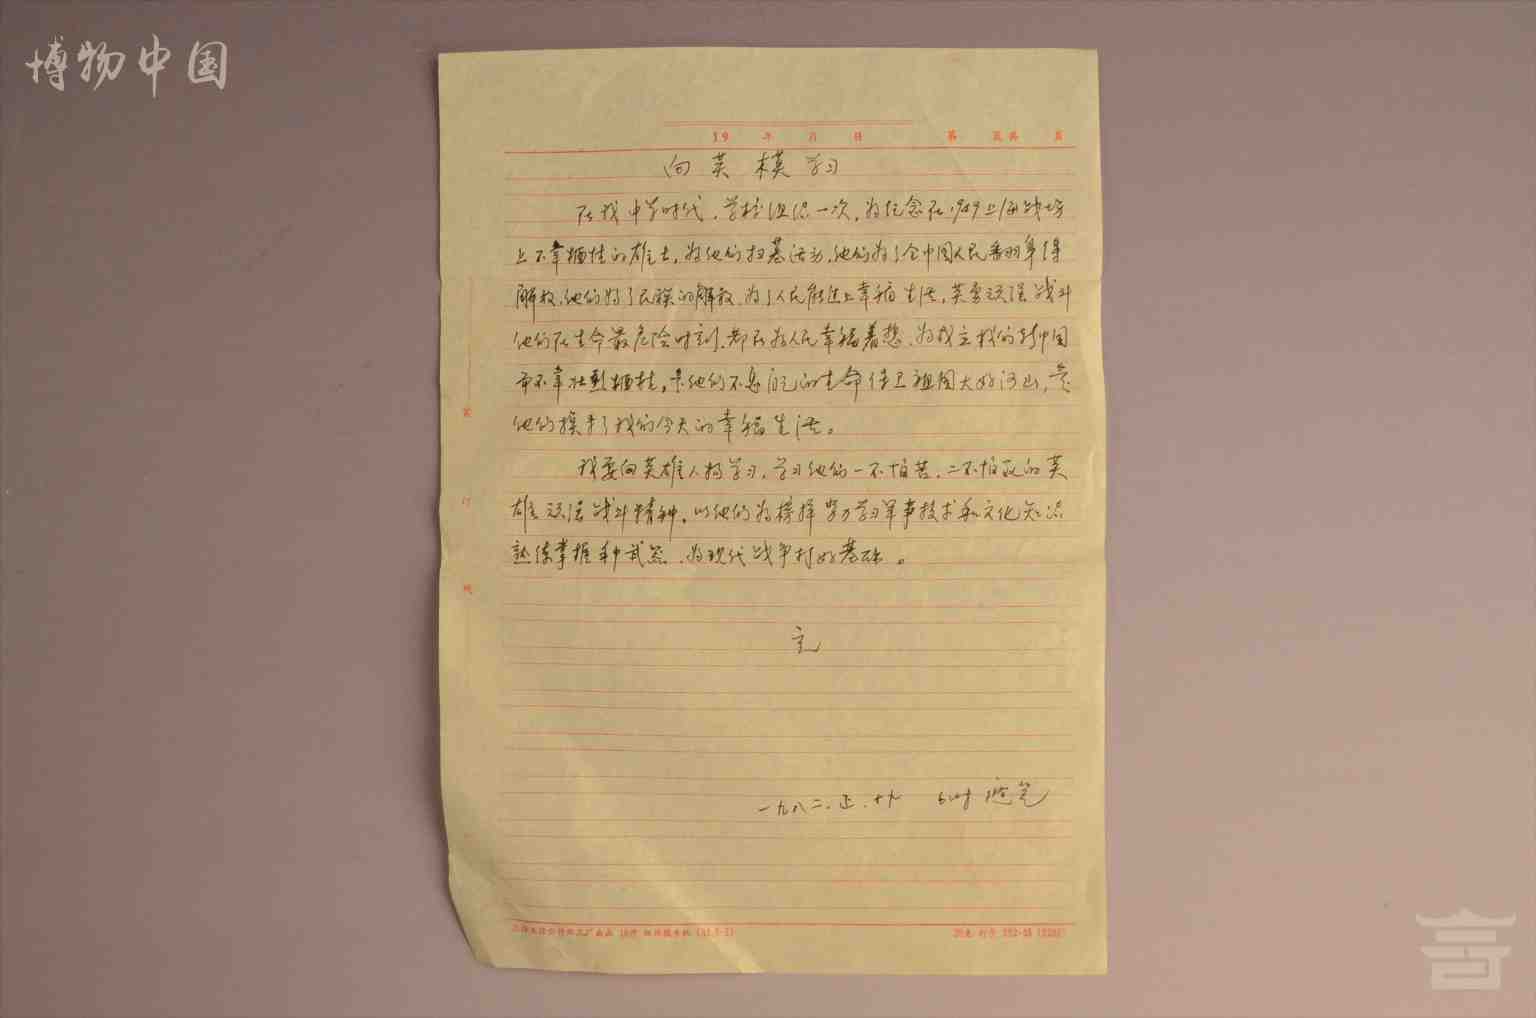 博物中国
19 年 月 日 第 页共 页
向英模学习
在我中学时代，学校组织一次，为纪念在1949上海战场
上不幸牺牲的雄士，为他们扫墓活动，他们为了全中国人民翻身得
解放，他们为了民族的解放，为了人民能过上幸福生活，英勇顽强战斗
他们在生命最危险时刻，都在为人民幸福着想，为成立我的新中国
而不幸壮烈牺牲，是他们不惠自己的生命保卫祖国大好河山，是
他们换来了我们今天的幸福生活。
我要向英雄人物学习，学习他们一不怕苦，二不怕死的英
雄顽强战斗精神，以他们为榜样努力学习军事技术和文化知识
熟练掌握手中武器，为现代战争打好基础。
完
一九八二.正.十九
装
订
线